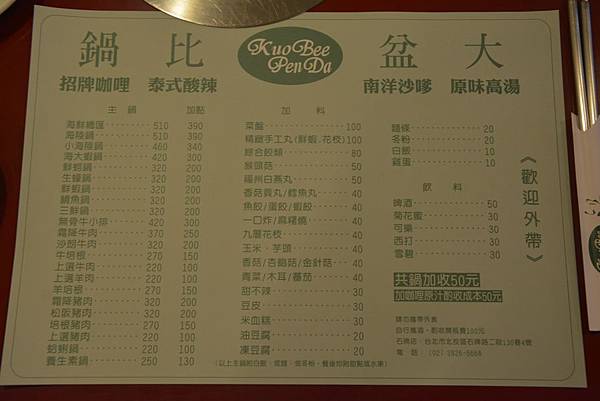 鍋比
Kuo Bee
Pen Da
盆大
招牌咖哩 泰式酸辣
南洋沙嗲 原味高湯
主鍋 加點
海鮮總匯 510 390
海陸鍋 510 390
小海陸鍋 460 340
海大蝦鍋 440 300
鮮蚵鍋 320 200
生蠔鍋 320 200
鮮蝦鍋 320 200
鯛魚鍋 320 200
三鮮鍋 320 200
無骨牛小排 420 300
霜降牛肉 370 250
沙朗牛肉 320 200
牛培根 270 150
上選牛肉 220 100
上選羊肉 220 100
羊培根 270 150
霜降豬肉 320 200
松阪豬肉 320 200
培根豬肉 270 150
上選豬肉 220 100
蛤蜊鍋 220 100
養生素鍋 250 130
加料
菜盤 100
精緻手工丸(鮮蝦.花枝) 100
綜合餃類 80
猴頭菇 50
福州白燕丸 50
香菇貢丸/鱈魚丸 40
魚餃/蛋餃/蝦餃 40
一口炸/麻糬燒 40
九層花枝 40
玉米.芋頭 40
香菇/杏鮑菇/金針菇 40
青菜/木耳/蕃茄 40
甜不辣 30
豆皮 30
米血糕 30
油豆腐 20
凍豆腐 20
麵條 20
冬粉 20
白飯 10
雞蛋 10
飲料
啤酒 50
菊花蜜 30
可樂 30
西打 30
雪碧 30
《歡迎外帶》
共鍋加收50元
加咖哩原汁酌收成本50元
請勿攜帶外食
自行攜酒,酌收開瓶費100元
石牌店:台北市北投區石牌路二段130巷4號
電話:(02) 2826-5668